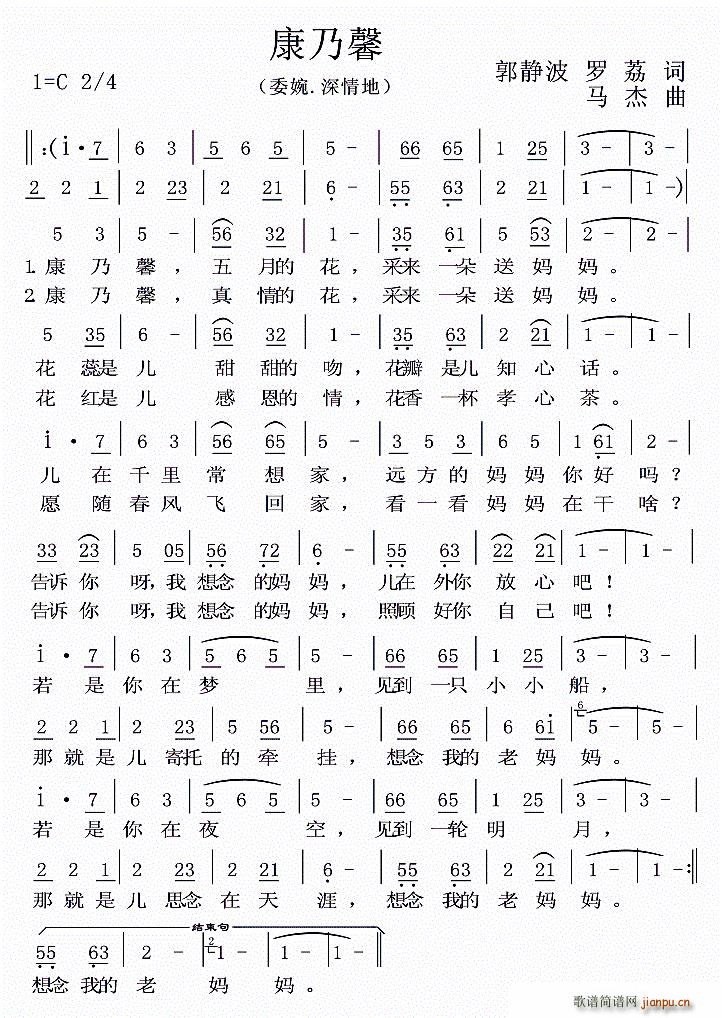 康乃馨
1=C 2/4
（委婉.深情地）
郭静波 罗 荔 词
马 杰 曲
‖:(i· 7 | 6 3 | 5 6 5 | 5 - | 66 65 | 1 25 | 3 - | 3 - |
2 2 1 | 2 23 | 2 21 | 6 - | 55 63 | 2 21 | 1 - | 1 -)|
5 3 | 5 - | 56 32 | 1 - | 35 61 | 5 53 | 2 - | 2 - |
1.康 乃 馨，五 月的 花，采来 一朵 送 妈 妈。
2.康 乃 馨，真 情的 花，采来 一朵 送 妈 妈。
5 35 | 6 - | 56 32 | 1 - | 35 63 | 2 21 | 1 - | 1 - |
花 蕊是 儿 甜 甜的 吻，花瓣 是儿 知 心 话。
花 红是 儿 感 恩的 情，花香 一杯 孝 心 茶。
i · 7 | 6 3 | 56 65 | 5 - | 3 5 3 | 6 5 | 1 61 | 2 - |
儿 在 千 里 常 想 家，远 方 的 妈 妈 你 好 吗？
愿 随 春 风 飞 回 家，看 一 看 妈 妈 在 干 啥？
33 23 | 5 05 | 56 72 | 6 - | 55 63 | 22 21 | 1 - | 1 - |
告诉 你 呀，我 想念 的妈 妈，儿在 外你 放 心 吧！
告诉 你 呀，我 想念 的妈 妈，照顾 好你 自 己 吧！
i · 7 | 6 3 | 5 6 5 | 5 - | 66 65 | 1 25 | 3 - | 3 - |
若 是 你 在 梦 里，见到 一只 小 小 船，
2 2 1 | 2 23 | 5 56 | 5 - | 55 63 | 6 6i | 6 5 - | 5 - |
那 就 是 儿 寄托 的 牵 挂，想念 我的 老 妈 妈。
i · 7 | 6 3 | 5 6 5 | 5 - | 66 65 | 1 25 | 3 - | 3 - |
若 是 你 在 夜 空，见到 一轮 明 月，
2 2 1 | 2 23 | 2 21 | 6 - | 55 63 | 2 21 | 1 - | 1 - :‖
那 就 是 儿 思念 在 天 涯，想念 我的 老 妈 妈。
结束句
55 63 | 2 - | 2 1 - | 1 - ‖
想念 我的 老 妈 妈。
歌谱简谱网 jianpu.cn